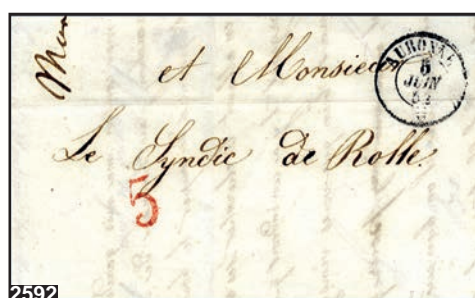 et Monsieur
Le Syndic de Rolle.
AUBONNE
5
JUIN
52
5
2592